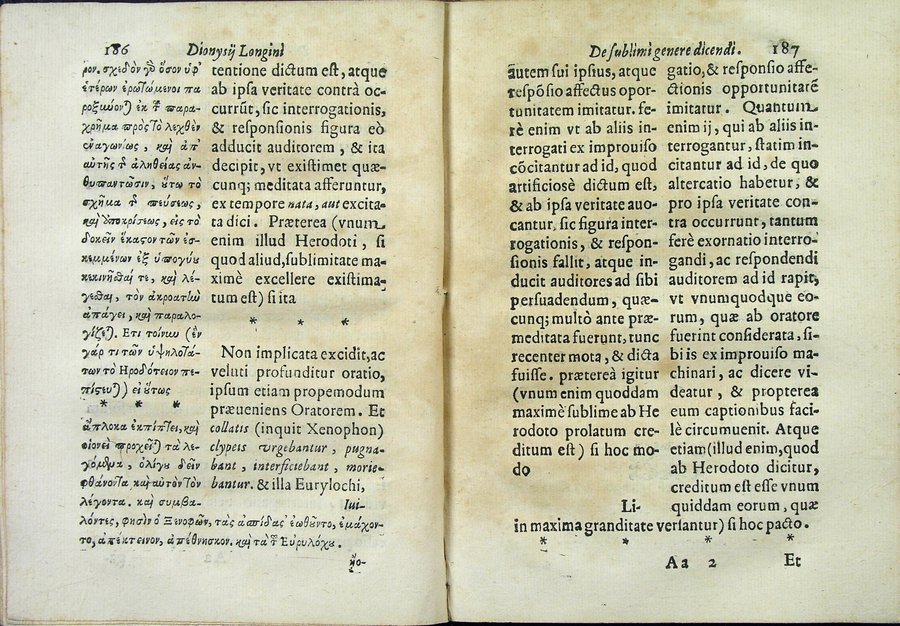 186 Dionysij Longini
ρον. σχεδὸν γὸ ὅσον ὑφ᾽
ἑτέρων ἐρωτώμενοι πα
ροξύνον) ἐκ τ παρα-
χρῆμα πρὸς τὸ λεχθὲν
ἐναγωνίως, καὶ ἀπ᾽
αὐτῆς τ ἀληθείας ἀν-
θυπαντῶσιν, ὕτω τὸ
σχῆμα τ πεύσεως,
καὶ ὑποκρίσεως, εἰς τὸ
δοκεῖν ἕκαστον τῶν ἐσ-
κεμμένων ἐξ ὑπογύυ
κεκινῆσθαί τε, καὶ λέ-
γεσθαι, τὸν ἀκροατὴν
ἀπάγει, καὶ παραλο-
γίζε). Ετι τοίνυν (ἓν
γάρ τι τῶν ὑψηλοτά-
των τὸ Ηροδότειον πε-
πίστευ)) εἰ ὕτως
* * *
ἄπλοκα ἐκπίπτει, καὶ
οἱονεὶ προχεῖ) τὰ λε-
γόμενα, ὀλίγυ δεῖν
φθάνοντα καὶ αὐτὸν τὸν
λέγοντα. καὶ συμβα-
λόντες, φησὶν ὁ Ξενοφῶν, τὰς ἀσπίδας ἐωθῦντο, ἐμάχον-
το, ἀπέκτεινον, ἀπέθνησκον. καὶ τὰ τ Εὐρυλόχυ.
tentione dictum est, atque
ab ipsa veritate contrà oc-
currũt, sic interrogationis,
& responsionis figura eò
adducit auditorem, & ita
decipit, vt existimet quæ-
cunq; meditata afferuntur,
ex tempore nata, aut excita
ta dici. Præterea (vnum
enim illud Herodoti, si
quod aliud, sublimitate ma-
ximè excellere existima-
tum est) si ita
* * *
Non implicata excidit, ac
veluti profunditur oratio,
ipsum etiam propemodum
præueniens Oratorem. Et
collatis (inquit Xenophon)
clypeis vrgebantur, pugna-
bant, interficiebant, morie-
bantur. & illa Eurylochi,
Iui-
De sublimi genere dicendi. 187
autem sui ipsius, atque
respõsio affectus opor-
tunitatem imitatur. fe-
rè enim vt ab aliis in-
terrogati ex improuiso
cõcitantur ad id, quod
artificiosè dictum est,
& ab ipsa veritate auo-
cantur, sic figura inter-
rogationis, & respon-
sionis fallit, atque in-
ducit auditores ad sibi
persuadendum, quæ-
cunq; multò ante præ-
meditata fuerunt, tunc
recenter mota, & dicta
fuisse. prætereà igitur
(vnum enim quoddam
maximè sublime ab He
rodoto prolatum cre-
ditum est) si hoc mo-
do
Li-
gatio, & responsio affe-
ctionis opportunitatẽ
imitatur. Quantum
enim ij, qui ab aliis in-
terrogantur, statim in-
citantur ad id, de quo
altercatio habetur, &
pro ipsa veritate con-
tra occurrunt, tantum
ferè exornatio interro-
gandi, ac respondendi
auditorem ad id rapit,
vt vnumquodque eo-
rum, quæ ab oratore
fuerint considerata, si-
bi is ex improuiso ma-
chinari, ac dicere vi-
deatur, & propterea
eum captionibus faci-
lè circumuenit. Atque
etiam (illud enim, quod
ab Herodoto dicitur,
creditum est esse vnum
quiddam eorum, quæ
in maxima granditate versantur) si hoc pacto.
* * *
Aa 2 Et